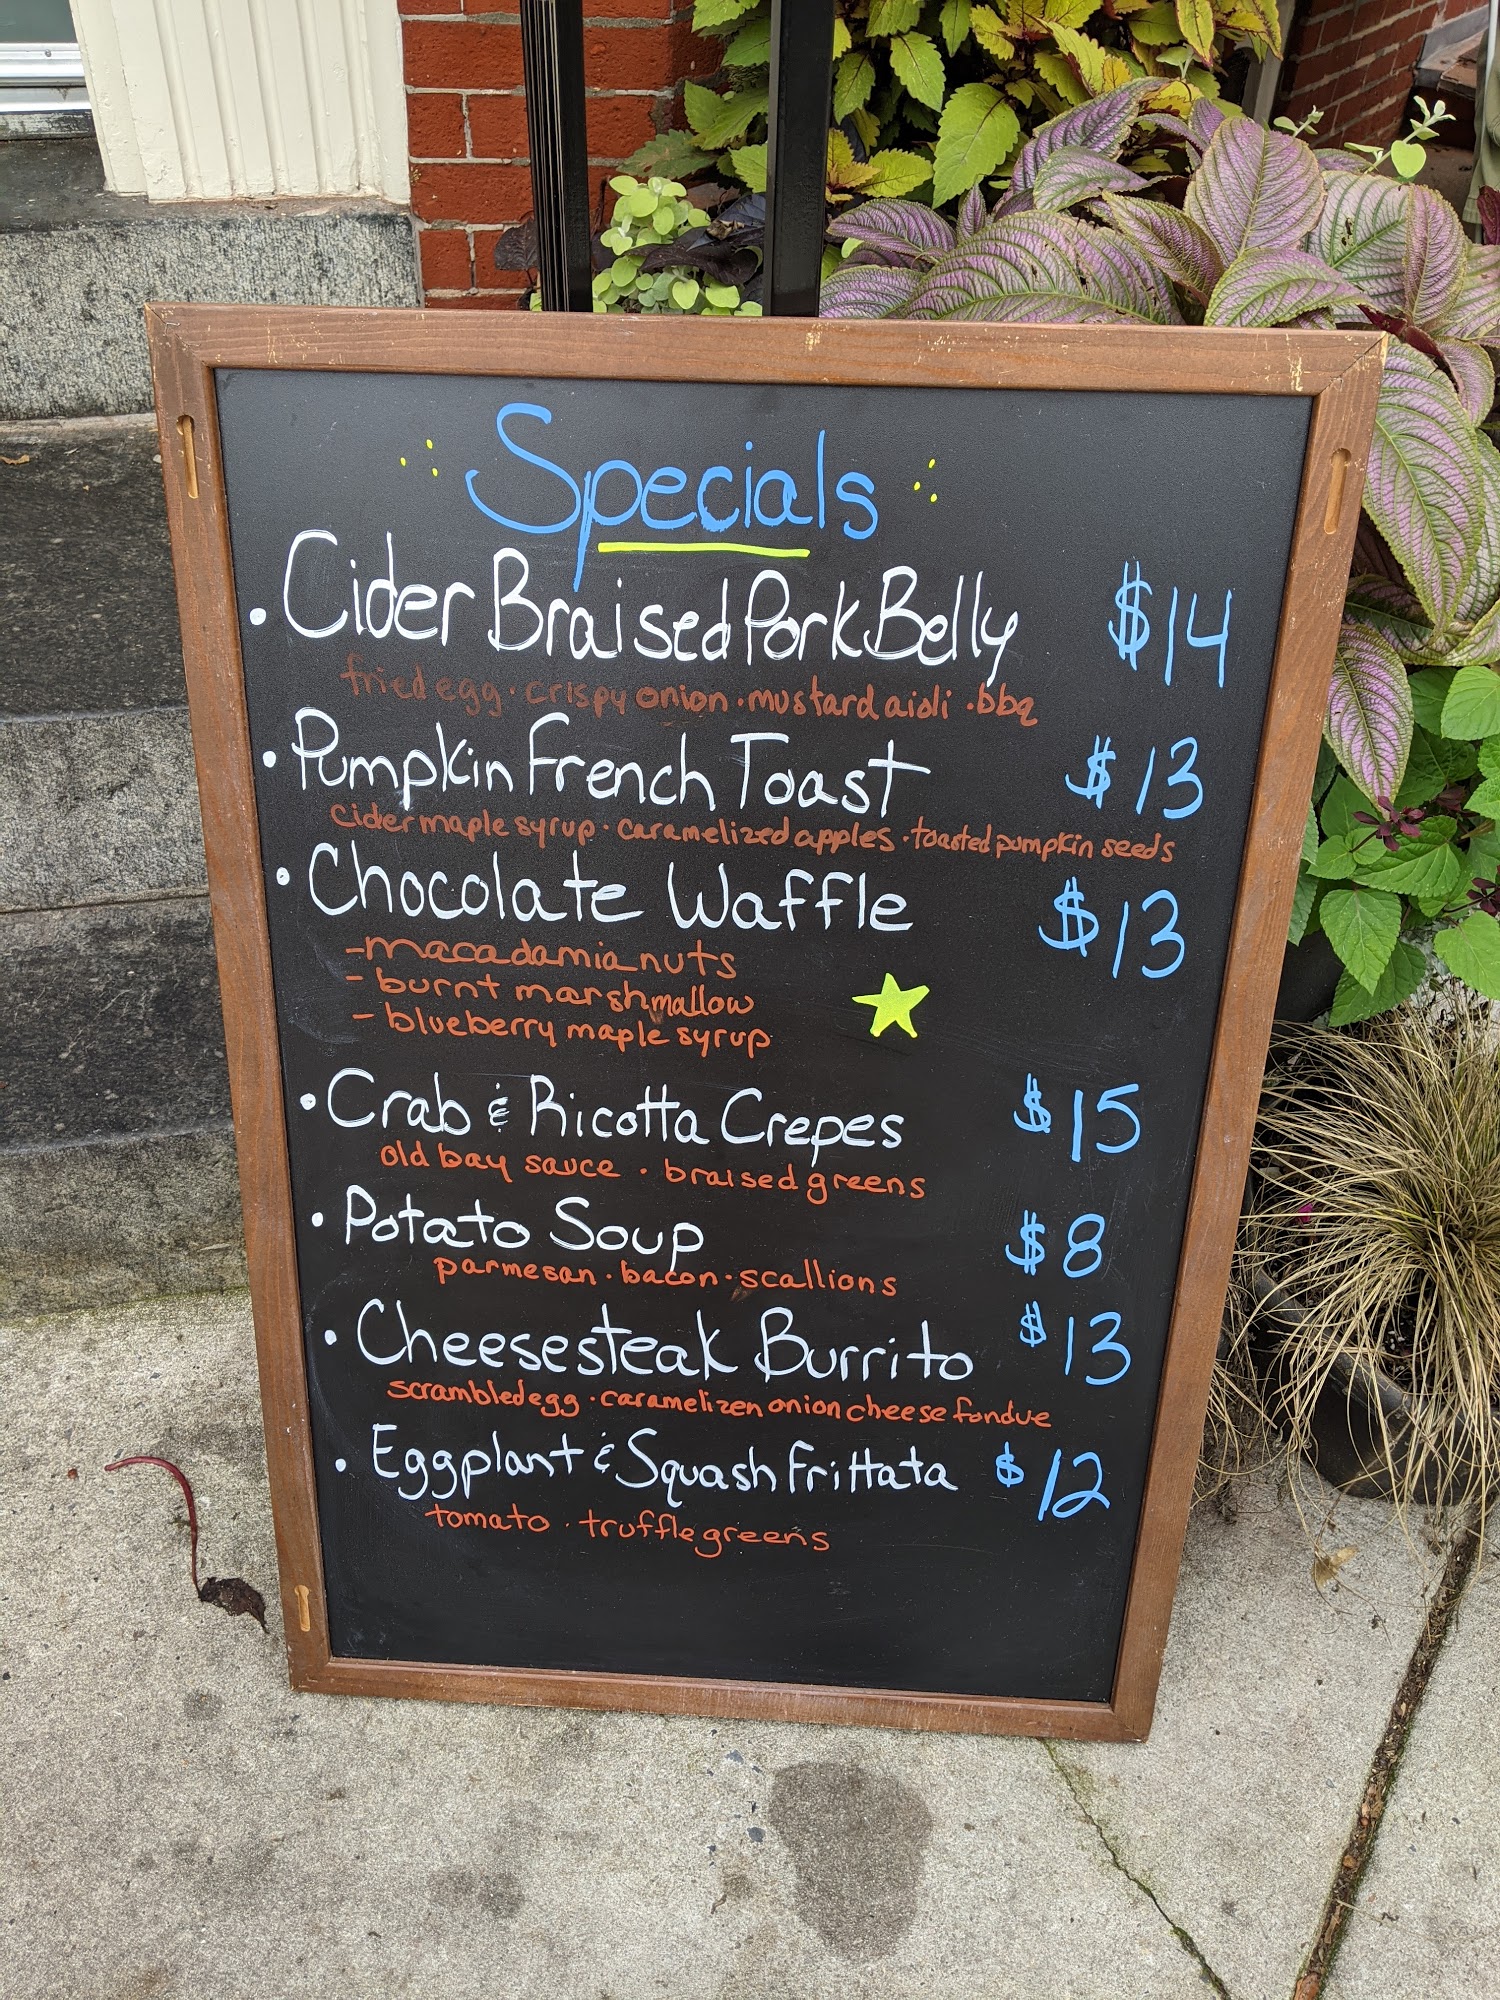 Specials
• Cider Braised Pork Belly $14
fried egg · crispy onion · mustard aioli · bbq
• Pumpkin French Toast $13
cider maple syrup · caramelized apples · toasted pumpkin seeds
• Chocolate Waffle $13
- macadamia nuts
- burnt marshmallow
- blueberry maple syrup
• Crab & Ricotta Crepes $15
old bay sauce · braised greens
• Potato Soup $8
parmesan · bacon · scallions
• Cheesesteak Burrito $13
scrambled egg · caramelizen onion cheese fondue
• Eggplant & Squash Frittata $12
tomato · truffle greens